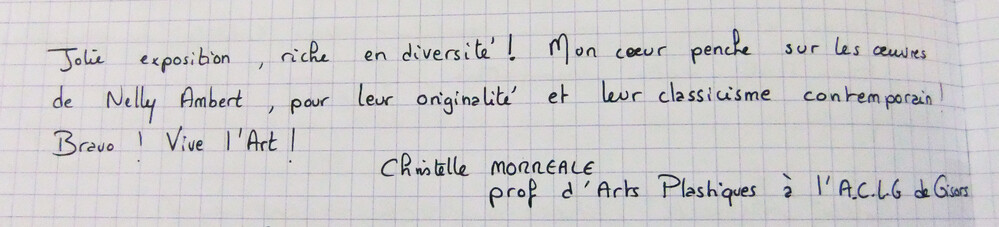 Jolie exposition, riche en diversité ! Mon cœur penche sur les œuvres
de Nelly Ambert, pour leur originalité et leur classicisme contemporain !
Bravo ! Vive l'Art !
Christelle MORREALE
prof d'Arts Plastiques à l'A.C.L.G de Gisors